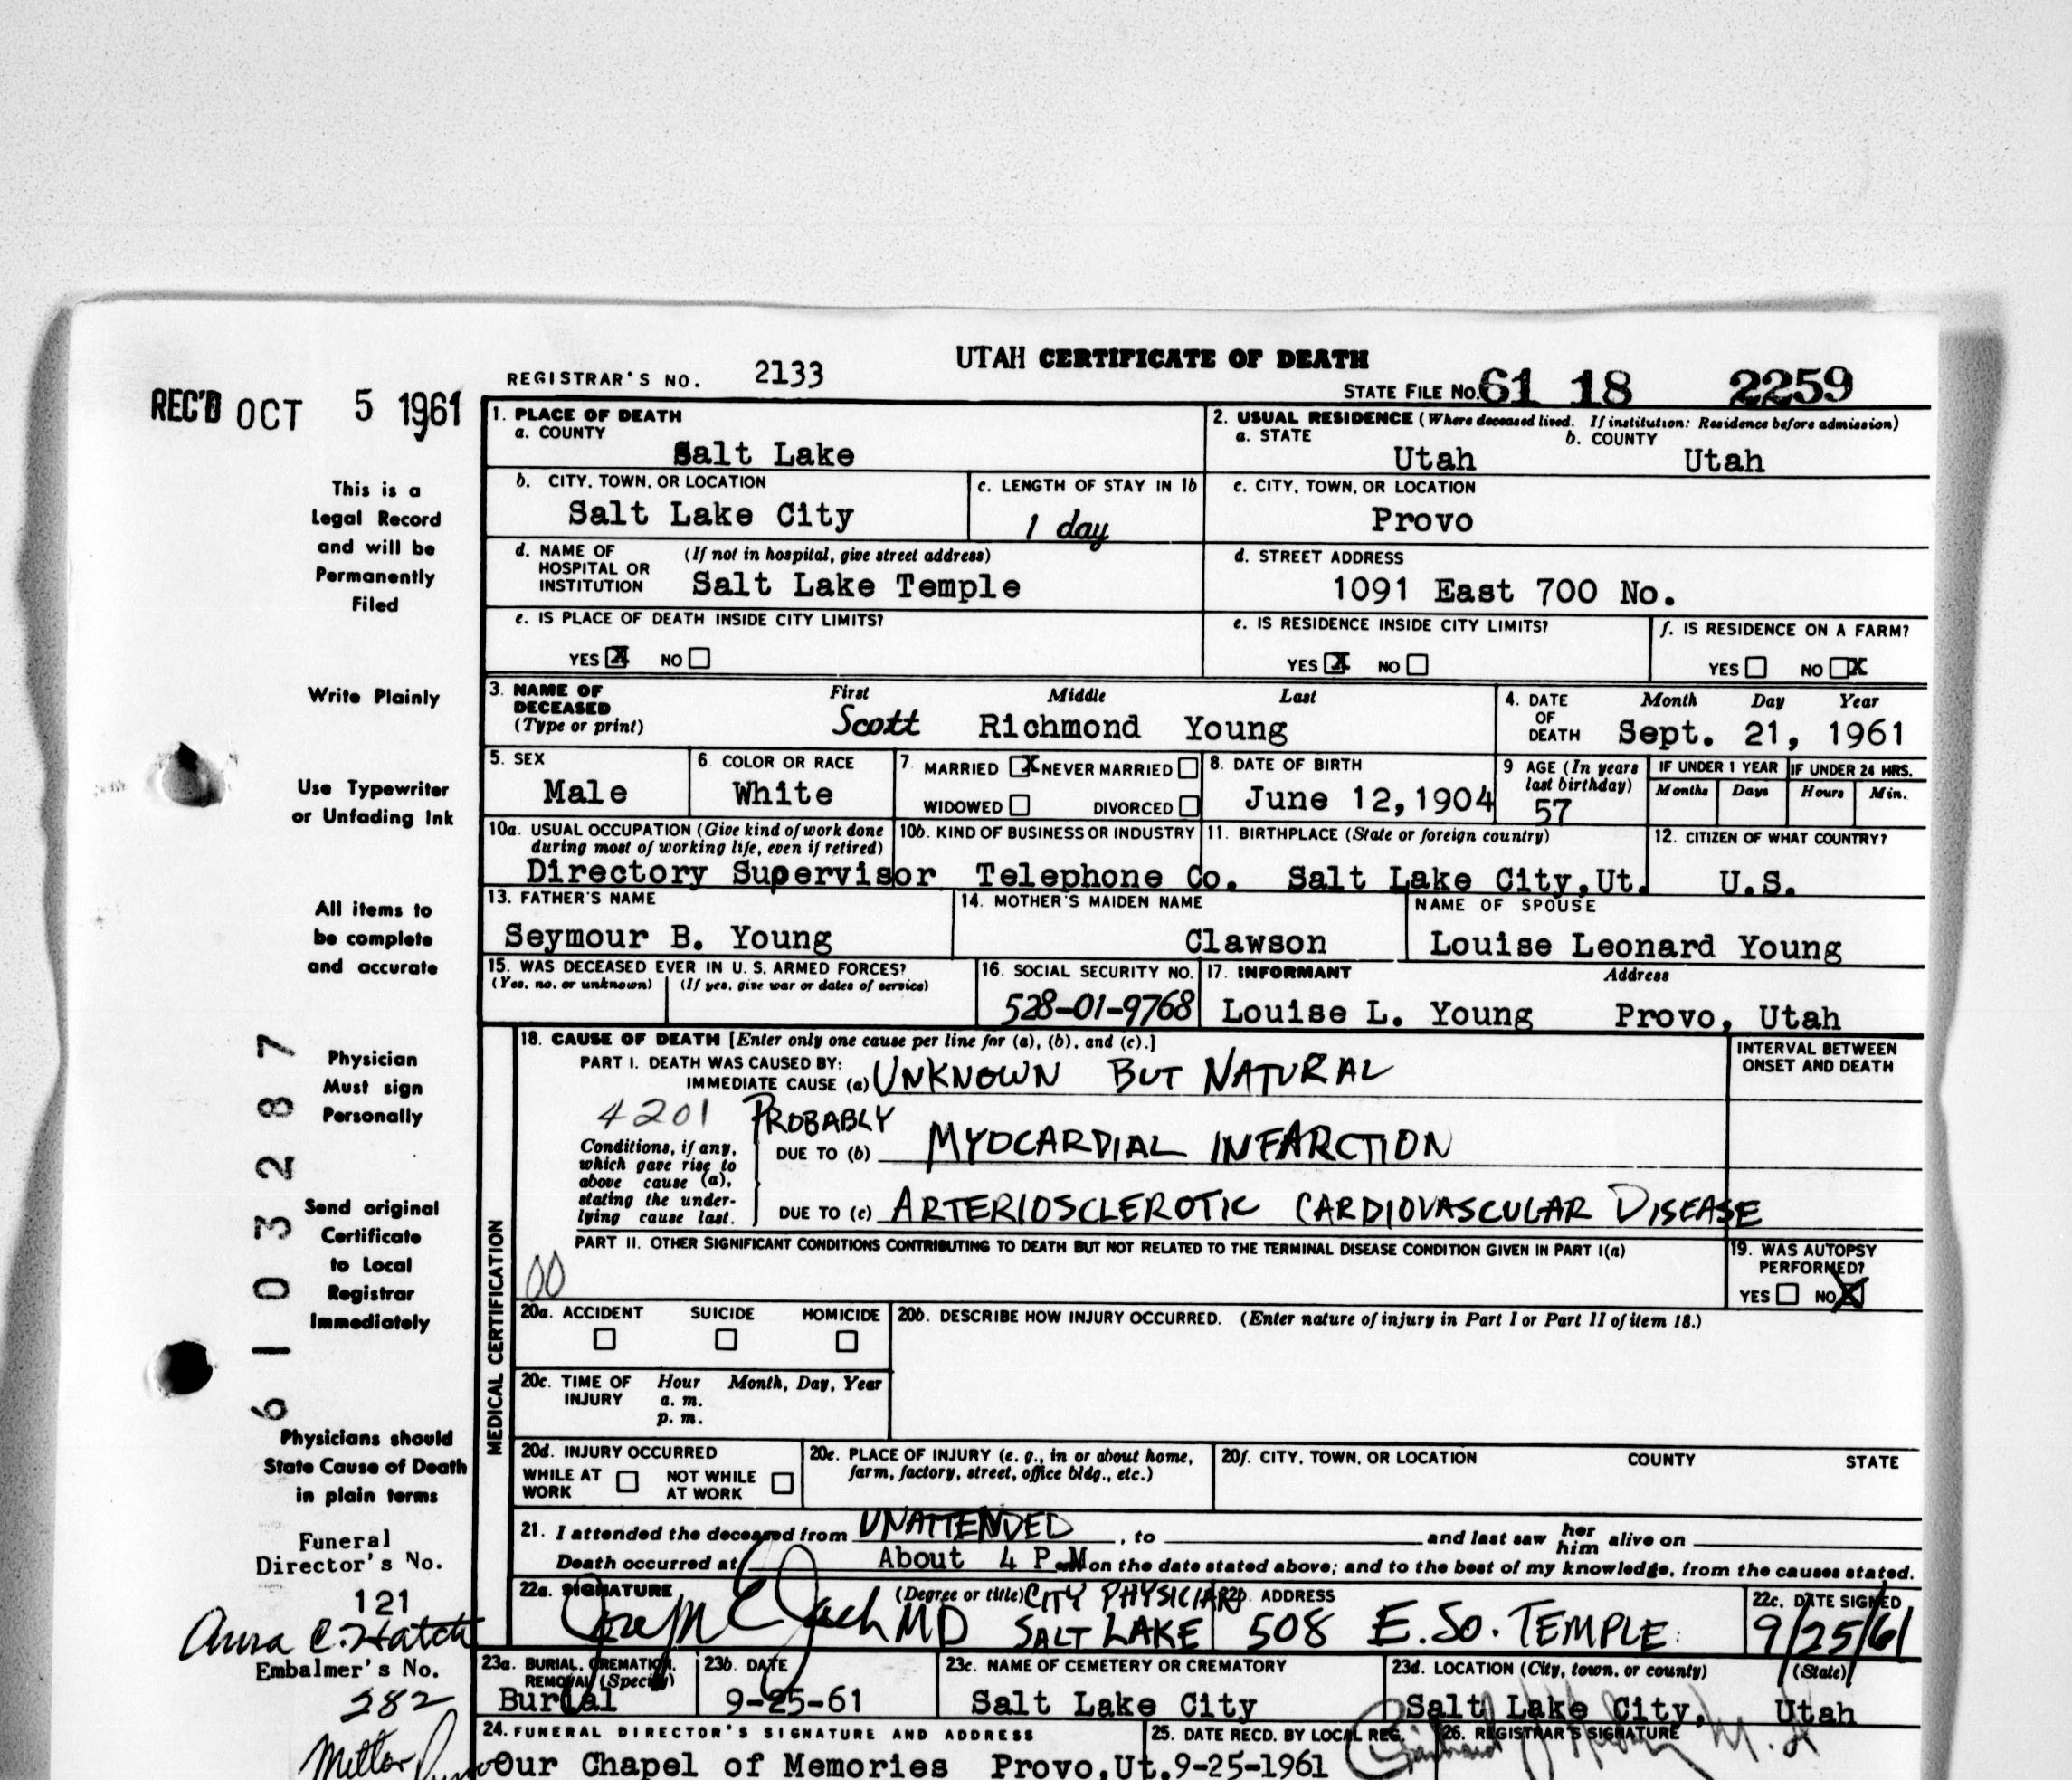 UTAH CERTIFICATE OF DEATH
REGISTRAR'S NO. 2133
STATE FILE NO. 61 18 2259
REC'D OCT 5 1961
This is a
Legal Record
and will be
Permanently
Filed
Write Plainly
Use Typewriter
or Unfading Ink
All items to
be complete
and accurate
Physician
Must sign
Personally
Send original
Certificate
to Local
Registrar
Immediately
Physicians should
State Cause of Death
in plain terms
Funeral
Director's No.
121
C. Hatch
Embalmer's No.
282
6103287
1. PLACE OF DEATH
a. COUNTY
Salt Lake
2. USUAL RESIDENCE (Where deceased lived. If institution: Residence before admission)
a. STATE b. COUNTY
Utah Utah
b. CITY, TOWN, OR LOCATION
Salt Lake City
c. LENGTH OF STAY IN 1b
1 day
c. CITY, TOWN, OR LOCATION
Provo
d. NAME OF HOSPITAL OR INSTITUTION (If not in hospital, give street address)
Salt Lake Temple
d. STREET ADDRESS
1091 East 700 No.
e. IS PLACE OF DEATH INSIDE CITY LIMITS?
YES X NO
e. IS RESIDENCE INSIDE CITY LIMITS?
YES X NO
f. IS RESIDENCE ON A FARM?
YES NO X
3. NAME OF DECEASED (Type or print) First Middle Last
Scott Richmond Young
4. DATE OF DEATH Month Day Year
Sept. 21, 1961
5. SEX
Male
6. COLOR OR RACE
White
7. MARRIED X NEVER MARRIED
WIDOWED DIVORCED
8. DATE OF BIRTH
June 12, 1904
9 AGE (In years last birthday)
57
IF UNDER 1 YEAR IF UNDER 24 HRS.
Months Days Hours Min.
10a. USUAL OCCUPATION (Give kind of work done during most of working life, even if retired)
Directory Supervisor
10b. KIND OF BUSINESS OR INDUSTRY
Telephone Co.
11. BIRTHPLACE (State or foreign country)
Salt Lake City, Ut.
12. CITIZEN OF WHAT COUNTRY?
U.S.
13. FATHER'S NAME
Seymour B. Young
14. MOTHER'S MAIDEN NAME
Clawson
NAME OF SPOUSE
Louise Leonard Young
15. WAS DECEASED EVER IN U. S. ARMED FORCES?
(Yes, no, or unknown) (If yes, give war or dates of service)
16. SOCIAL SECURITY NO.
528-01-9768
17. INFORMANT Address
Louise L. Young Provo, Utah
MEDICAL CERTIFICATION
18. CAUSE OF DEATH [Enter only one cause per line for (a), (b), and (c).]
INTERVAL BETWEEN ONSET AND DEATH
PART I. DEATH WAS CAUSED BY:
IMMEDIATE CAUSE (a) UNKNOWN BUT NATURAL
4201 PROBABLY
Conditions, if any, which gave rise to above cause (a), stating the underlying cause last.
DUE TO (b) MYOCARDIAL INFARCTION
DUE TO (c) ARTERIOSCLEROTIC CARDIOVASCULAR DISEASE
PART II. OTHER SIGNIFICANT CONDITIONS CONTRIBUTING TO DEATH BUT NOT RELATED TO THE TERMINAL DISEASE CONDITION GIVEN IN PART I(a)
00
19. WAS AUTOPSY PERFORMED?
YES NO X
20a. ACCIDENT SUICIDE HOMICIDE
20b. DESCRIBE HOW INJURY OCCURRED. (Enter nature of injury in Part I or Part II of item 18.)
20c. TIME OF INJURY Hour Month, Day, Year
a. m.
p. m.
20d. INJURY OCCURRED
WHILE AT WORK NOT WHILE AT WORK
20e. PLACE OF INJURY (e. g., in or about home, farm, factory, street, office bldg., etc.)
20f. CITY, TOWN, OR LOCATION COUNTY STATE
21. I attended the deceased from UNATTENDED, to and last saw her him alive on
Death occurred at About 4 P.M on the date stated above; and to the best of my knowledge, from the causes stated.
22a. SIGNATURE (Degree or title) CITY PHYSICIAN
MD SALT LAKE
22b. ADDRESS
508 E. SO. TEMPLE
22c. DATE SIGNED
9/25/61
23a. BURIAL, CREMATION, REMOVAL (Specify)
Burial
23b. DATE
9-25-61
23c. NAME OF CEMETERY OR CREMATORY
Salt Lake City
23d. LOCATION (City, town, or county) (State)
Salt Lake City, Utah
24. FUNERAL DIRECTOR'S SIGNATURE AND ADDRESS
Our Chapel of Memories Provo, Ut.
25. DATE RECD. BY LOCAL REG.
9-25-1961
26. REGISTRAR'S SIGNATURE